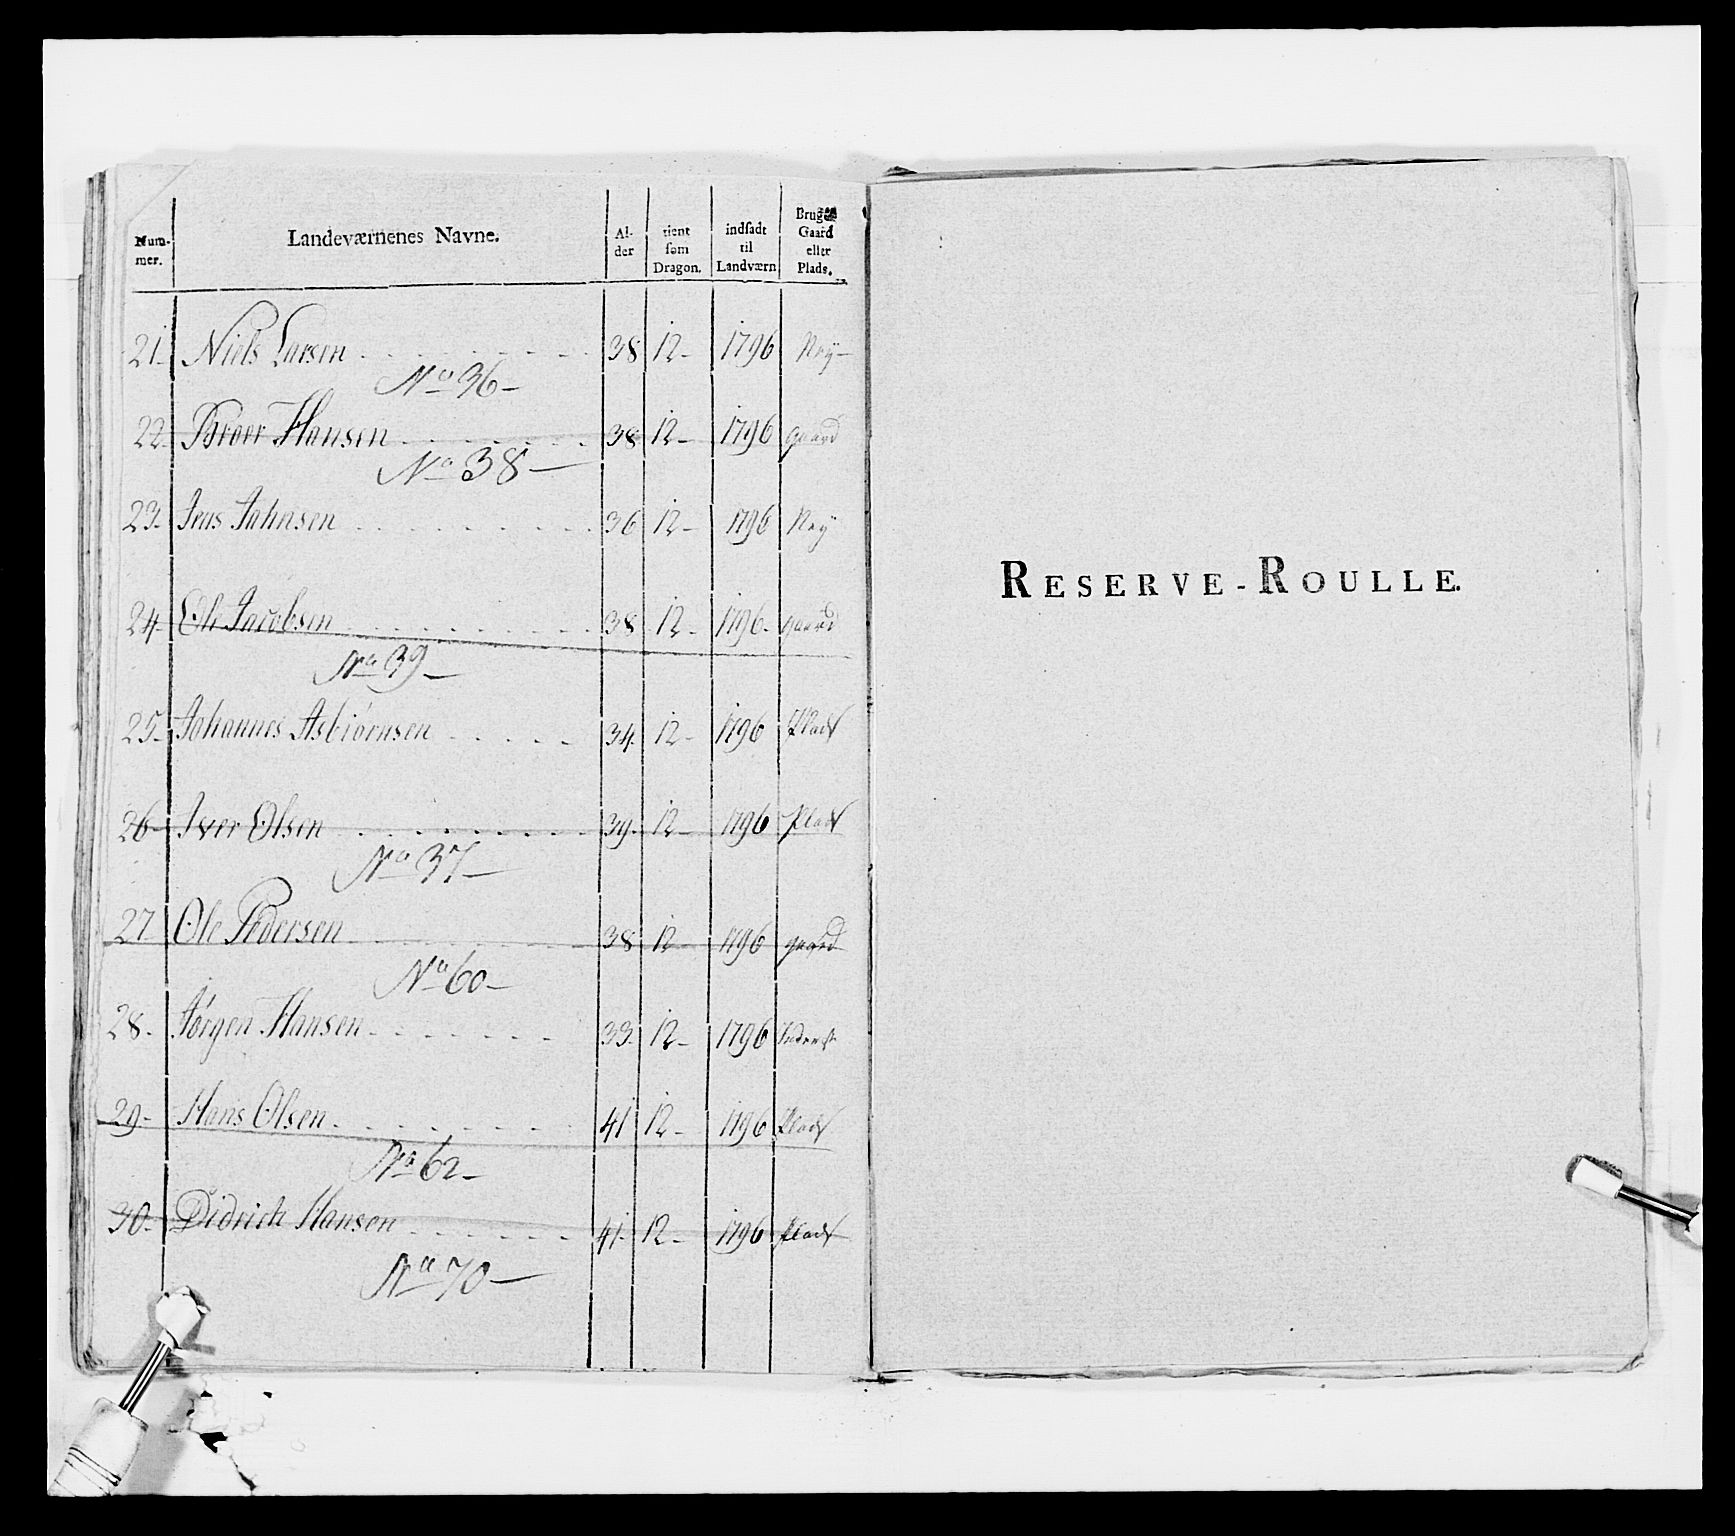 Num- mer. Landeværnenes Navne. Al- der tient som Dragon. indsadt til Landværn Bruger Gaard eller Plads.
21. Niels Larsen 38 12 - 1796 Ney -
No 36 -
22. Broer Hansen 38 12 - 1796 gaard
No 38 -
23. Jens Johnsen 36 12 - 1796 Ney
24. Ole Jacobsen 38 12 - 1796. gaard
No 39 -
25. Johannes Asbiørnsen 34. 12 - 1796 Plads
26 Iver Olsen 39. 12 - 1796 Plads
No 37 -
27 Ole Pedersen 38 12 - 1796 gaard
No 60 -
28. Jørgen Hansen 33. 12 - 1796
29. Hans Olsen 41 12 - 1796 Plads
No 62 -
30. Didrich Hansen 41. 12 - 1796 Plads
No 70 -
RESERVE-ROULLE.